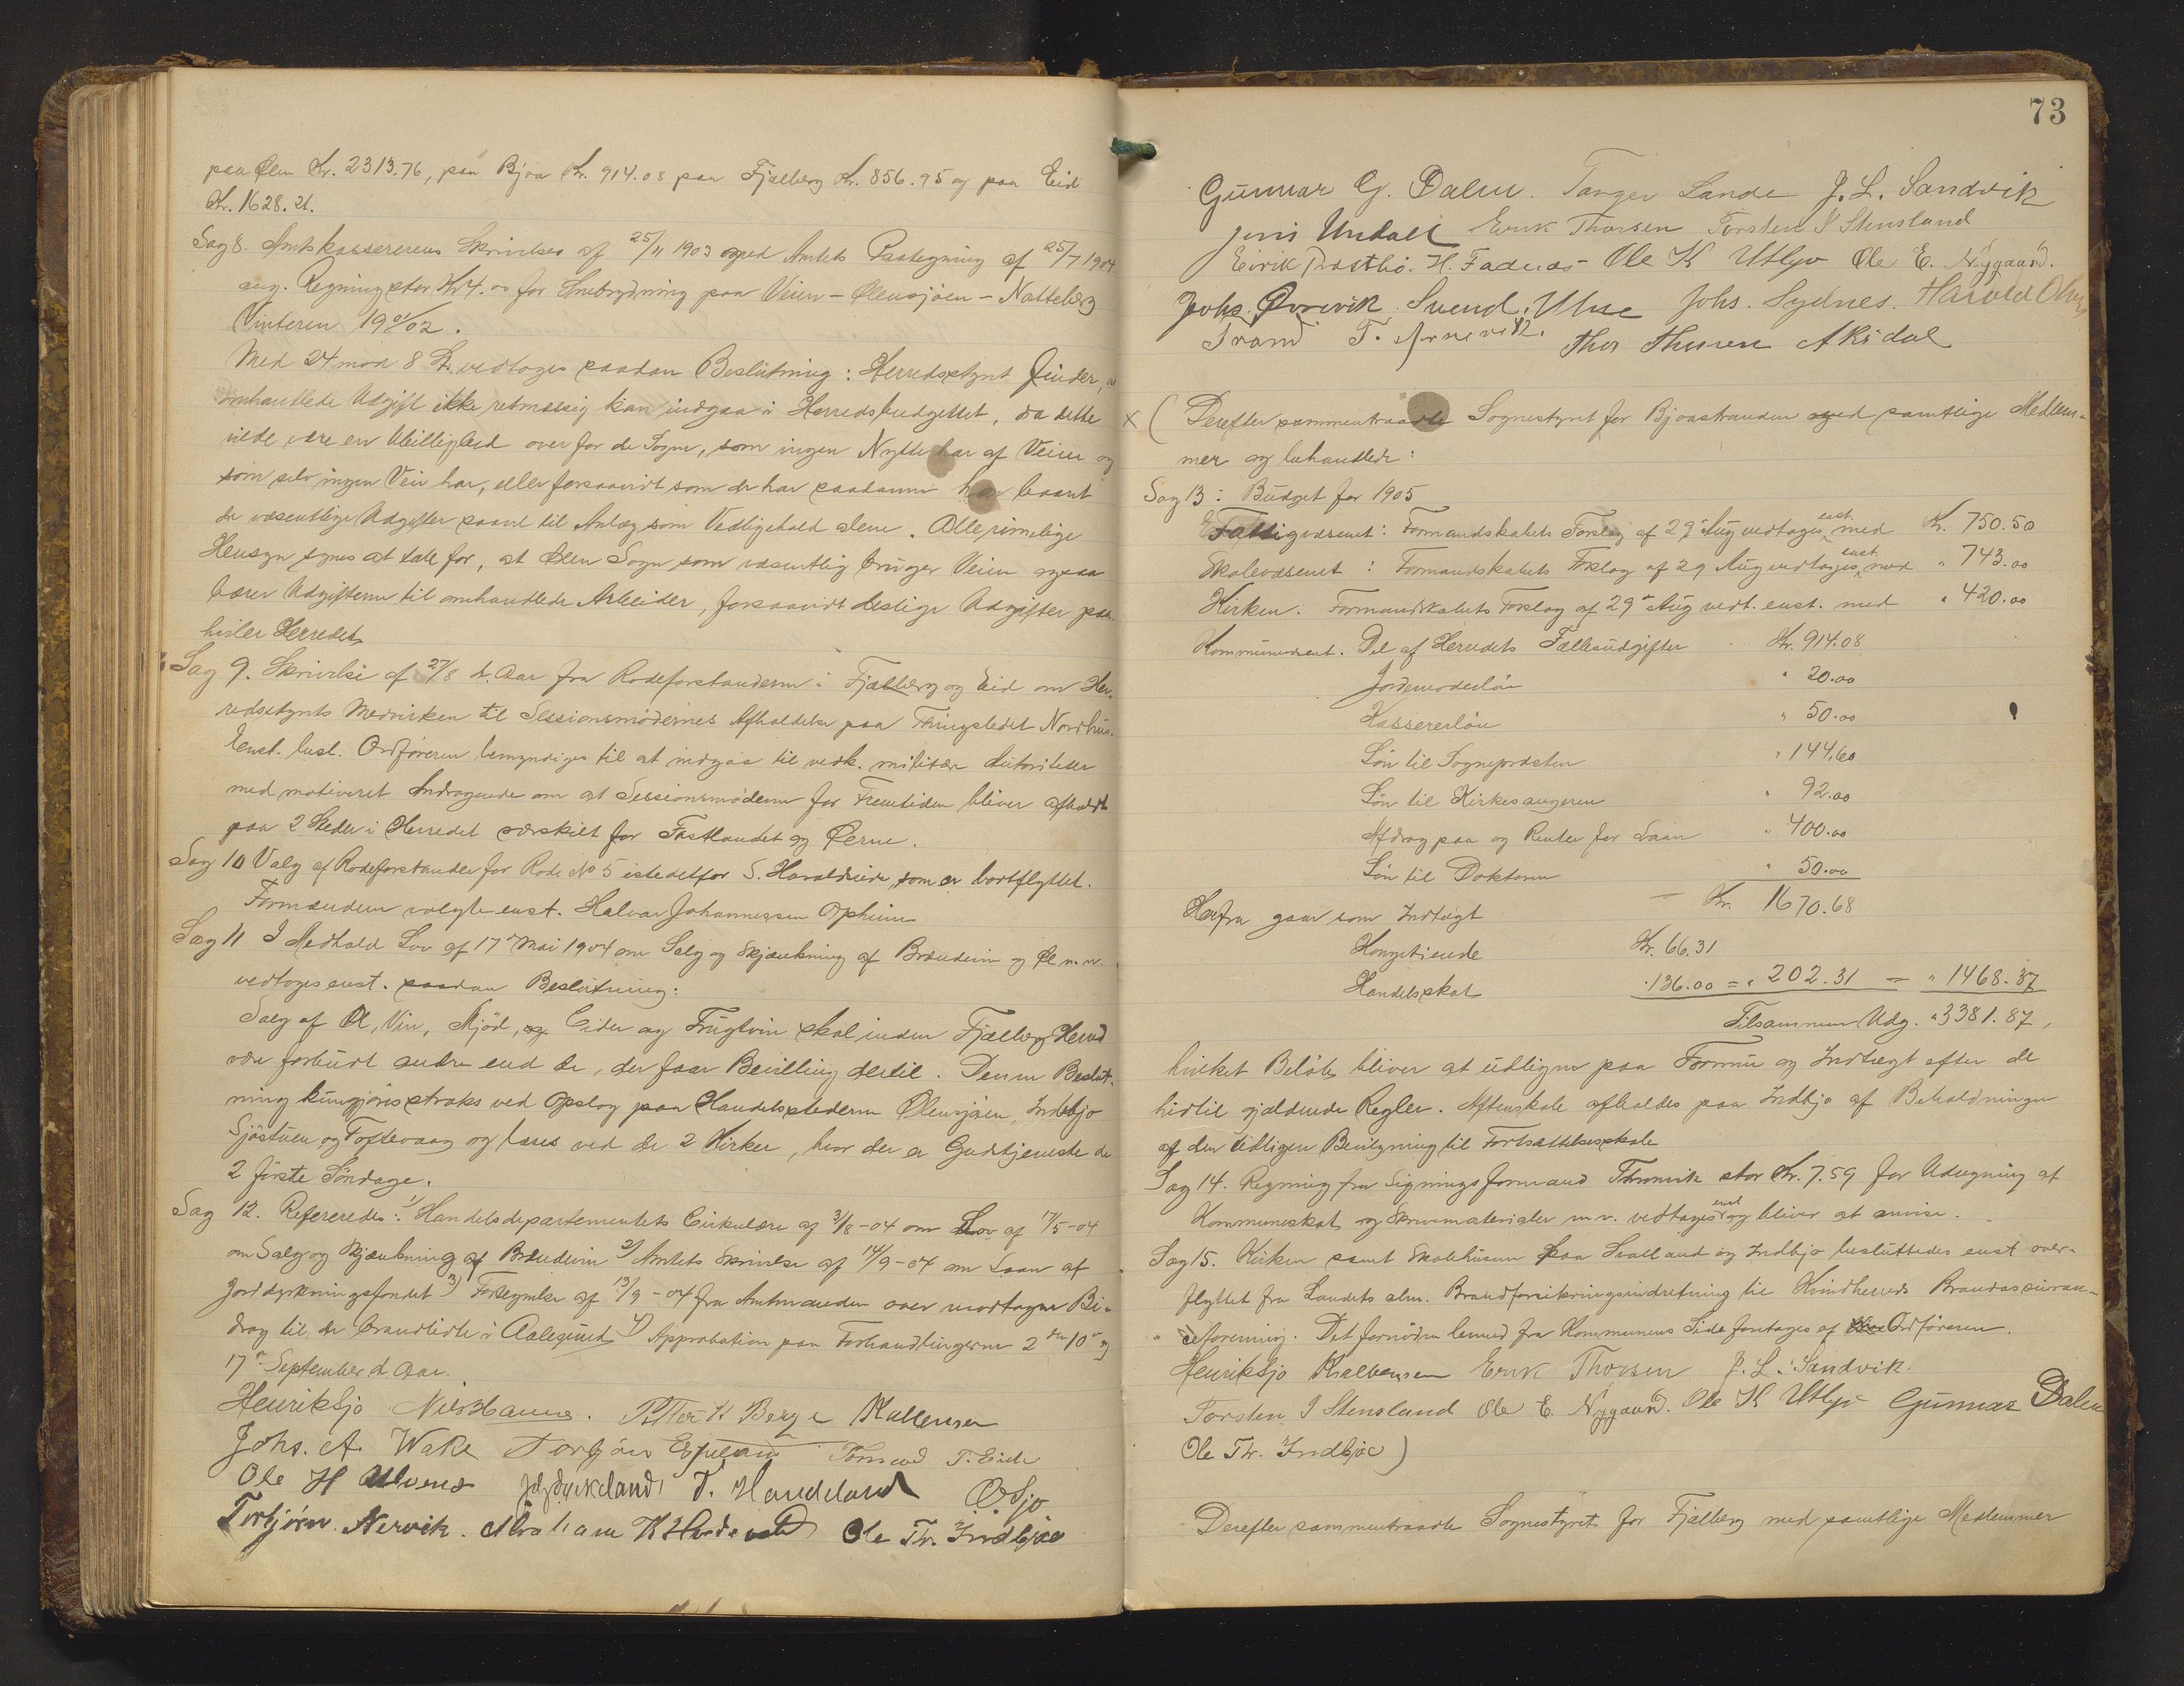 paa Ølen Kr. 2313.76, paa Bjoa Kr. 914.08 paa Fjælberg Kr. 856.95 og paa Eid
Kr. 1628.21.
Sag 8. Amtskassererens Skrivelse af 25/11 1903 med Amtets Paategning af 25/7 1904
ang. Regning stor Kr 4.00 for Snebrydning paa Veien – Ølensjöen – Natteberg
Vinteren 1901/02.
Med 24 mod 8 St. vedtoges saadan Beslutning: Herredsstyret finder, at
omhandlede Udgift ikke retmæssig kan indgaa i Herredsbudgettet, da dette
vilde være en Ubillighed over for de Sogne, som ingen Nytte har af Veien og
som selv ingen Vei har, eller forsaavidt som de har saadanne har baaret
de væsentlige Udgifter saavel til Anlæg som Vedligehold alene. Alle rimelige
Hensyn synes at tale for, at Ølen Sogn som væsentlig bruger Veien ogsaa
bærer Udgifterne til omhandlede Arbeider, forsaavidt deslige Udgifter paa-
hviler Herredet.
Sag 9. Skrivelse af 27/8 d. Aar fra Rodeforstanderne i Fjælberg og Eid om Her-
redsstyrets Medvirken til Sessionsmödernes Afholdelse paa Thingstedet Nordhus.
Enst. besl. Ordföreren bemyndiges til at indgaa til vedk. militære Autoriteter
med motiveret Andragende om at Sessionsmöderne for Fremtiden bliver afholdt
paa 2 Steder i Herredet særskilt for Fastlandet og Øerne.
Sag 10 Valg af Rodeforstander for Rode No 5 istedetfor S. Haraldseide, som er bortflyttet.
Formanden valgte enst. Halvar Johannessen Opheim
Sag 11 I Medhold Lov af 17de Mai 1904 om Salg og Skjænkning af Brændevin og Øl m.v.
vedtoges enst. saadan Beslutning:
Salg af Øl, Vin, Mjöd, og Cider og Frugtvin skal inden Fjælberg Herred
være forbudt andre end de, der faar Bevilling dertil. Denne Beslut-
ning kungjöres straks ved Opslag paa Handelsstederne Ølensjöen, Indbjo
Sjöstuen og Toftevaag og læses ved de 2 Kirker, hvor der er Gudstjeneste de
2 förste Söndage.
Sag 12. Refereredes: 1/ Handelsdepartementets Cirkulære af 3/8-04 om Lov af 17/5-04
om Salg og Skjænkning af Brændevin 2/ Amtets Skrivelse af 14/9-04 om Laan af
Jorddyrkningsfondet 3) Fortegnelse af 13/9-04 fra Amtmanden over modtagne Bi-
drag til de brandlidte i Aalesund 4) Approbation paa Forhandlingerne 2den 10de og
17de September d. Aar.
Henrik Sjo Nils Haune. Petter K Berge Kallevsen
Johs. A. Wake Torbjörn Tönned T. Eide
Ole H Ulvenes T. Handeland O. Sjo
Torbjörn Nervik. Abraham K Ole Tr. Indbjoe
73
Gunnar G. Dalen. Tanger Lande J. L. Sandvik
Jens Undall Erik Thorsen Torsten I Stensland
Eirik Prestbö. H. Fadnæs Ole K Utbjo Ole E. Nygaard.
Johs. Qvrevik Svend. Ulne Johs. Sydnes. Harald
Trand T. Thor Thorsen Akidal
x ( Derefter sammentraadte Sognestyret for Bjoastranden med samtlige Medlem-
mer og behandlede:
Sag 13: Budget for 1905
Fattigvæsenet: Formandskabets Forslag af 29de Aug vedtages enst. med Kr. 750.50
Skolevæsenet: Formandskabets Forslag af 29 Aug vedtages enst med " 743.00
Kirken: Formandskabets Forslag af 29de Aug vedt. enst. med " 420.00
Kommunevæsenet. Del af Herredets Fællesudgifter Kr. 914.08
Jordemoderlön " 20.00
Kassererlön " 50.00
Lön til Sognepræsten " 144.60
Lön til Kirkesangeren " 92.00
Afdrag paa og Renter for Laan " 400.00
Lön til Doktoren " 50.00
Herfra gaar som Indtægt — Kr. 1670.68
Kongetiende Kr. 66.31
Handelsskat " 136.00 = " 202.31 = " 1468.37
Tilsammen Udg. " 3381.87,
hvilket Belöb bliver at udligne paa Formue og Indtægt efter de
hidtil gjældende Regler. Aftenskole afholdes paa Indbjo af Beholdningen
af den tidligere Bevilgning til Fortsættelsesskole
Sag 14. Regning fra Ligningsformand Thronvik stor Kr. 7.59 for Udregning af
Kommuneskat og Skrivematerialer m.v. vedtages enst og bliver at anvise.
Sag 15. Kirken samt Skolehusene paa Svolland og Indbjo besluttedes enst over-
flyttet fra Landets alm. Brandforsikringsindretning til Kvindherreds Brandassuran-
ceforening. Det fornödne herved fra Kommunens Side foretages af Ordföreren.
Henrik Sjo Kallevsen Erik Thorsen J. L. Sandvik.
Torsten I Stensland Ole E. Nygaard. Ole K Utbjo Gunnar Dalen
Ole Tr. Indbjoe)
Derefter sammentraadte Sognestyret for Fjælberg med samtlige Medlemmer